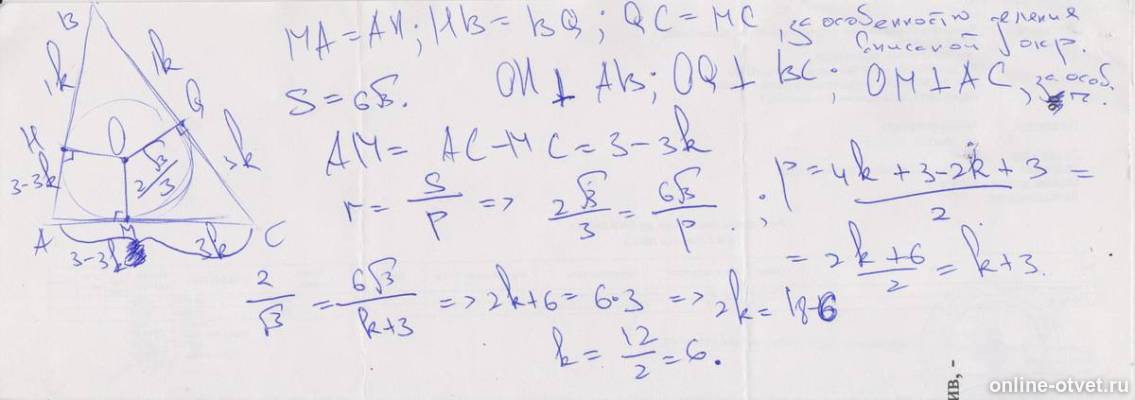 B
1k
1k
Q
H
O
2√3/3
3k
3-3k
A
M
C
3-3k
3k
MA = AH; HB = BQ; QC = MC, за особенностю деления
вписаной окр.
S = 6√3. OH ⊥ AB; OQ ⊥ BC; OM ⊥ AC, за особ.
AM = AC - MC = 3 - 3k
r = S/p => 2√3/3 = 6√3/p ; p = (4k + 3 - 2k + 3)/2 =
= (2k + 6)/2 = k + 3.
2/√3 = 6√3/(k+3) => 2k + 6 = 6·3 => 2k = 18-6
k = 12/2 = 6.
ИВ, -
online-otvet.ru